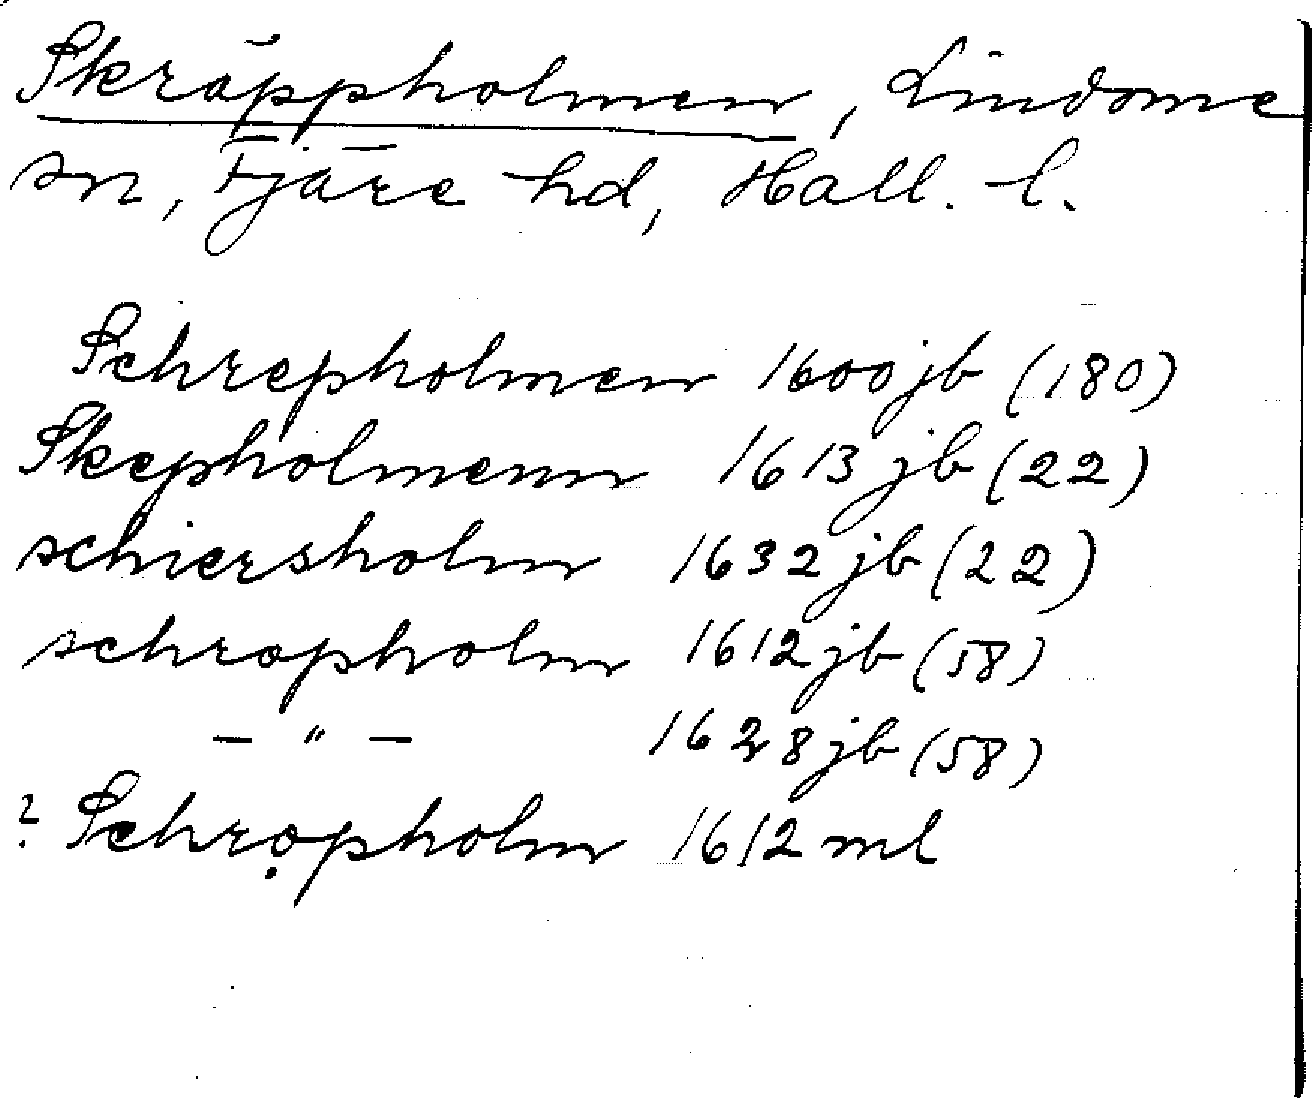 Skräppholmen, Lindome
sn, Fjäre hd, Hall. l.
Schrepholmen 1600 jb (180)
Skepholmenn 1613 jb (22)
schiersholm 1632 jb (22)
schropholm 1612 jb (58)
— " — 1628 jb (58)
? Schrọpholm 1612 ml